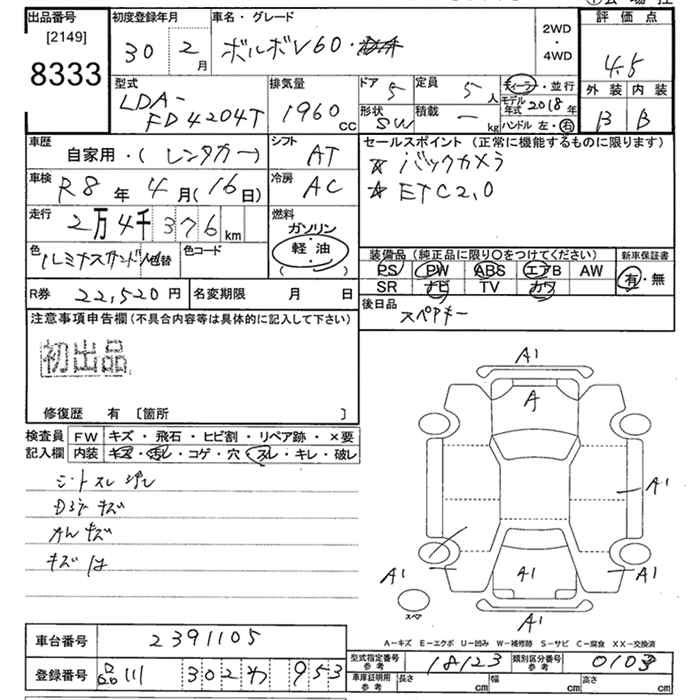 出品番号
[2149]
8333
初度登録年月
30年 2月
車名・グレード
ボルボV60・
2WD
・
4WD
評価点
4.5
外装 内装
B B
型式
LDA-
FD4204T
排気量
1960 cc
ドア 5
定員 5人
形状 SW
積載 — kg
ディーラー・並行
モデル年式 2018年
ハンドル 左・右
車歴
自家用・(レンタカー)
シフト
AT
車検
R8年4月(16日)
冷房
AC
走行
2万4千376km
燃料
ガソリン
軽・油
( ・ )
色
ルミナスサンドM
色替
色コード
セールスポイント (正常に機能するものに限ります)
☆ バックカメラ
☆ ETC2.0
装備品 (純正品に限り○をつけてください)
新車保証書
PS PW ABS エアB AW
SR ナビ TV カワ
有・無
R券 22,520円
名変期限 月 日
後日品
スペアキー
注意事項申告欄 (不具合内容等は具体的に記入して下さい)
初出品
修復歴 有 [箇所 ]
検査員
記入欄
FW キズ・飛石・ヒビ割・リペア跡・×要
内装 キズ・汚レ・コゲ・穴・スレ・キレ・破レ
シートスレ
キズ
キズ
キズ
A1
A
A1
A1
A1
A1
A1
A1
スペア
A-キズ E-エクボ U-凹み W-補修跡 S-サビ C-腐食 XX-交換済
車台番号 2391105
登録番号 品川 302 わ 953
型式指定番号 参考 18123
類別区分番号 参考 0103
車庫証明用 参考
長さ cm
幅 cm
高さ cm